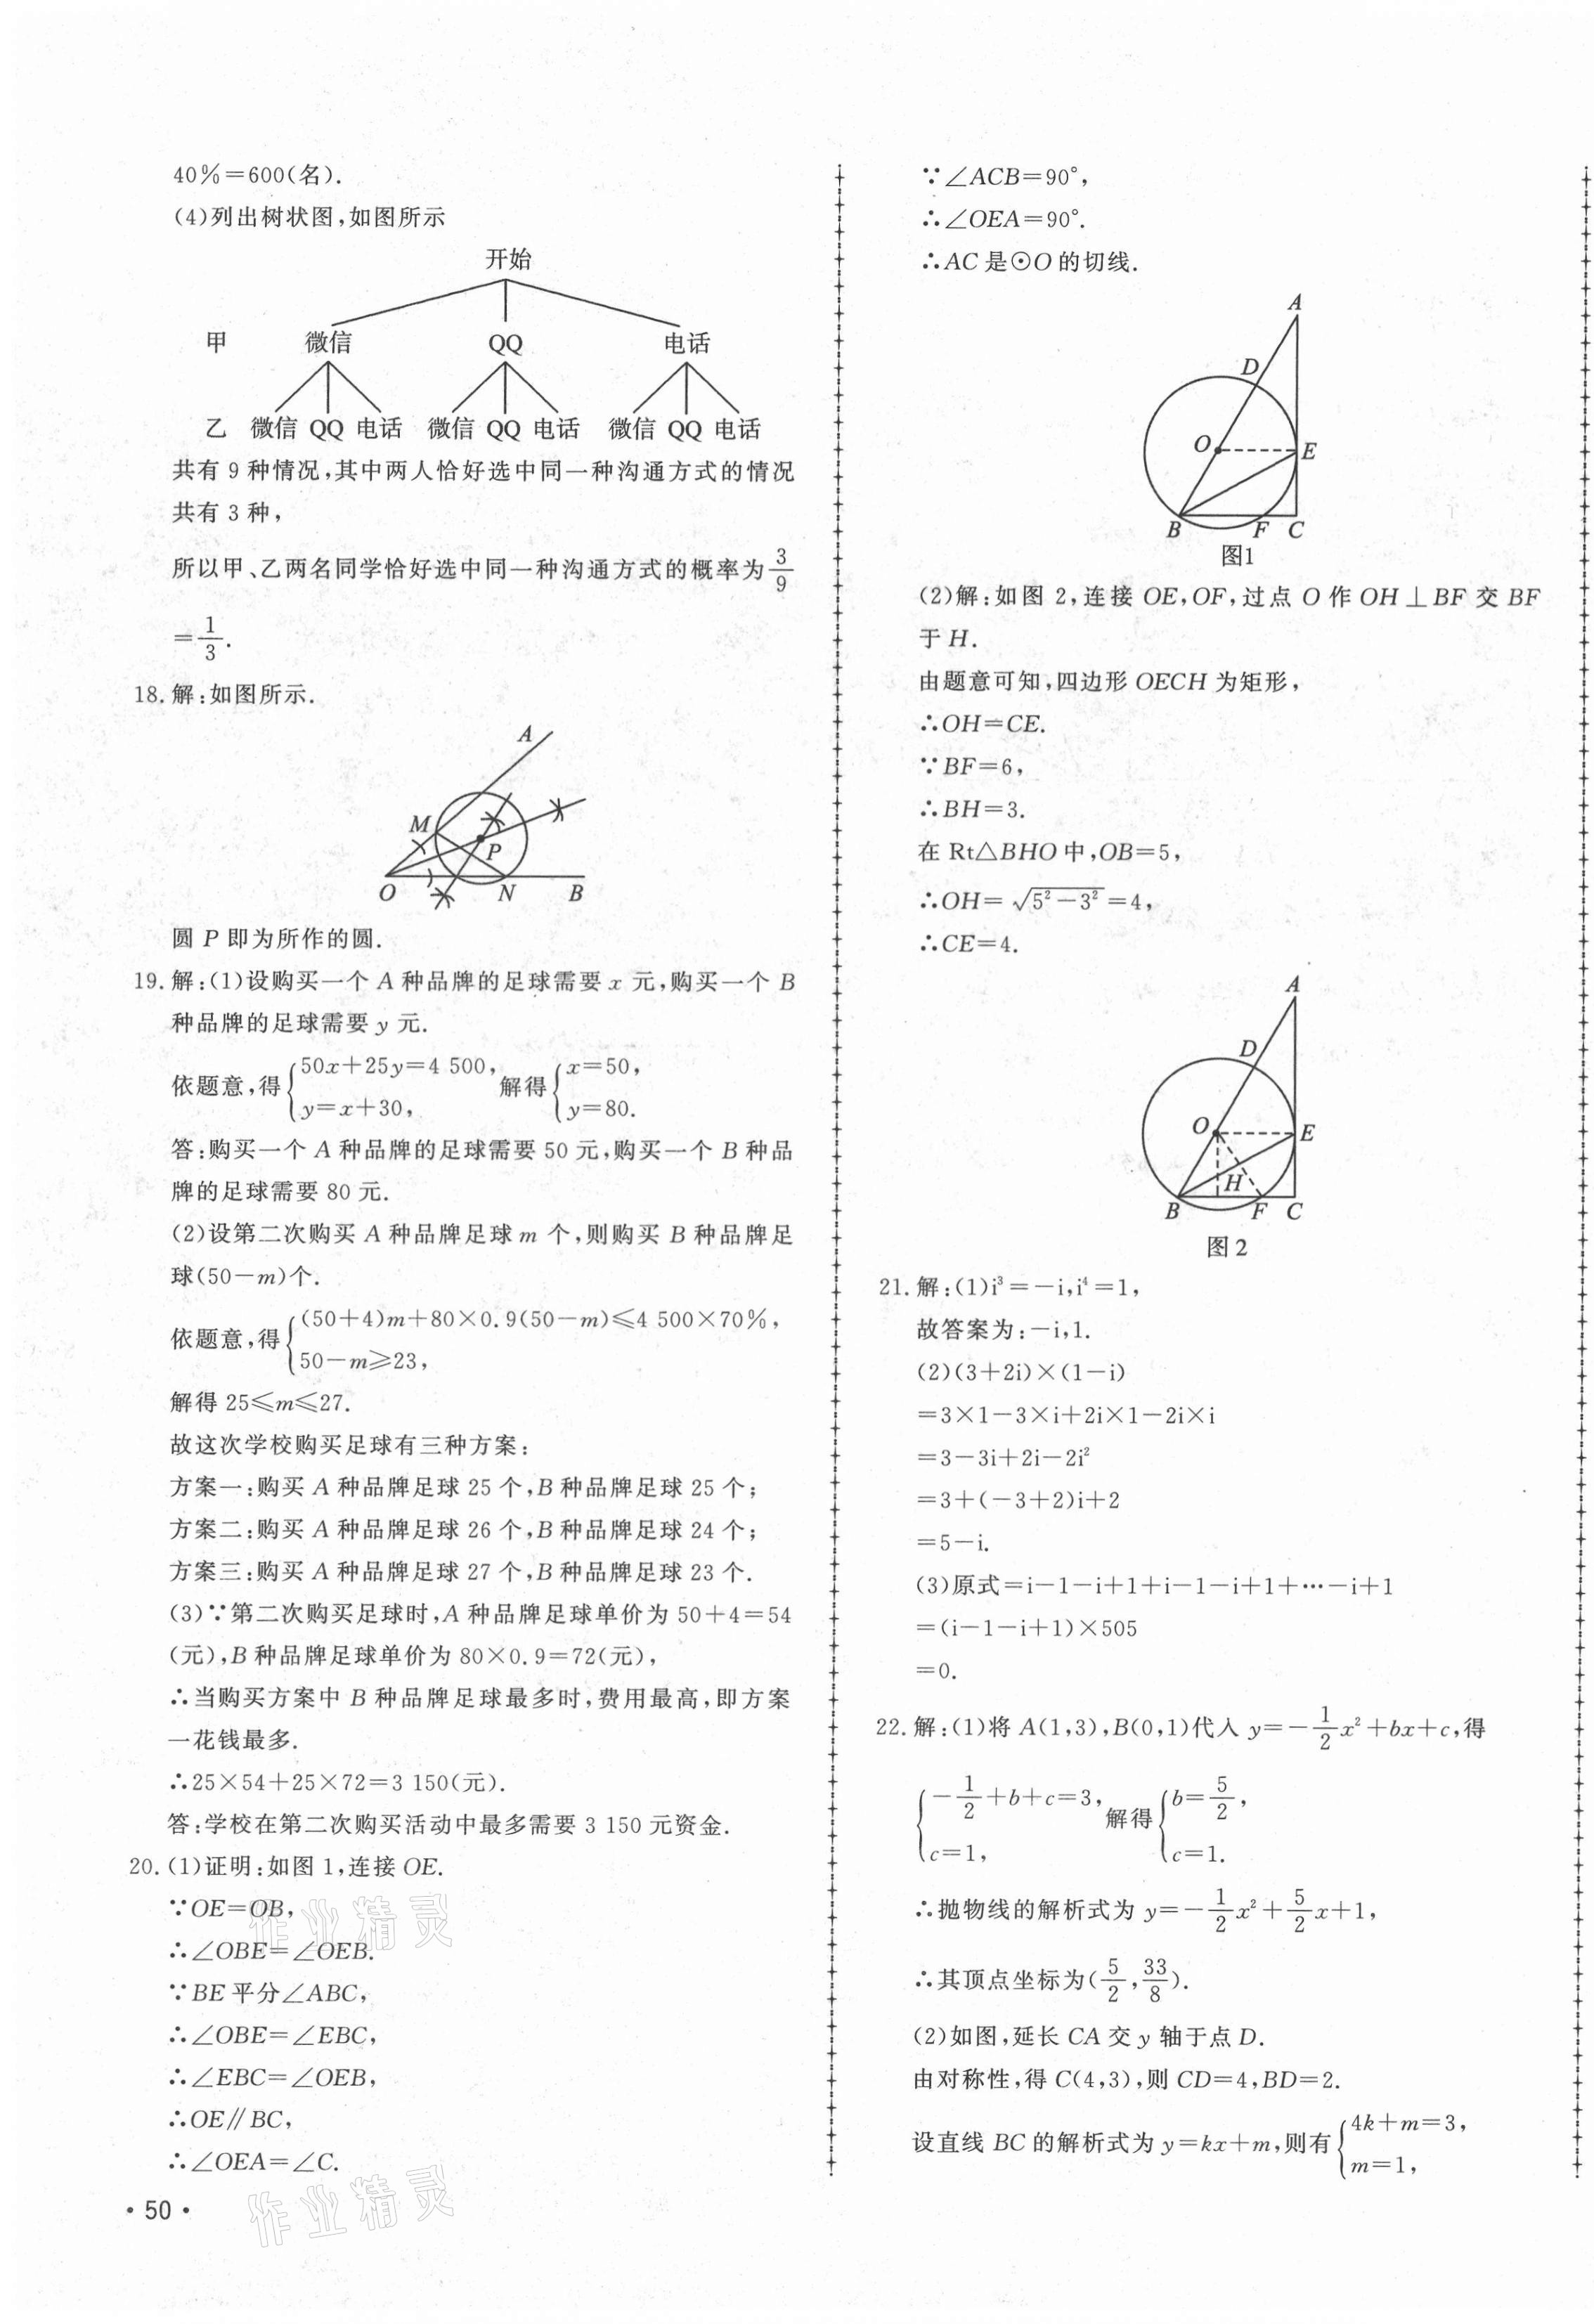 40%=600(名).
(4)列出树状图,如图所示
开始
甲 微信 QQ 电话
乙 微信 QQ 电话 微信 QQ 电话 微信 QQ 电话
共有 9 种情况,其中两人恰好选中同一种沟通方式的情况
共有 3 种,
所以甲、乙两名同学恰好选中同一种沟通方式的概率为 3/9
=1/3.
18. 解:如图所示.
A
M
P
O N B
圆 P 即为所作的圆.
19. 解:(1)设购买一个 A 种品牌的足球需要 x 元,购买一个 B
种品牌的足球需要 y 元.
依题意,得{50x+25y=4 500, y=x+30, 解得{x=50, y=80.
答:购买一个 A 种品牌的足球需要 50 元,购买一个 B 种品
牌的足球需要 80 元.
(2)设第二次购买 A 种品牌足球 m 个,则购买 B 种品牌足
球(50-m)个.
依题意,得{(50+4)m+80×0.9(50-m)≤4 500×70%, 50-m≥23,
解得 25≤m≤27.
故这次学校购买足球有三种方案:
方案一:购买 A 种品牌足球 25 个,B 种品牌足球 25 个;
方案二:购买 A 种品牌足球 26 个,B 种品牌足球 24 个;
方案三:购买 A 种品牌足球 27 个,B 种品牌足球 23 个.
(3)∵第二次购买足球时,A 种品牌足球单价为 50+4=54
(元),B 种品牌足球单价为 80×0.9=72(元),
∴当购买方案中 B 种品牌足球最多时,费用最高,即方案
一花钱最多.
∴25×54+25×72=3 150(元).
答:学校在第二次购买活动中最多需要 3 150 元资金.
20. (1)证明:如图 1,连接 OE.
∵OE=OB,
∴∠OBE=∠OEB.
∵BE 平分∠ABC,
∴∠OBE=∠EBC,
∴∠EBC=∠OEB,
∴OE∥BC,
∴∠OEA=∠C.
作业精灵
作业精灵
• 50 •
∵∠ACB=90°,
∴∠OEA=90°.
∴AC 是⊙O 的切线.
A
D
O E
B F C
图1
(2)解:如图 2,连接 OE,OF,过点 O 作 OH⊥BF 交 BF
于 H.
由题意可知,四边形 OECH 为矩形,
∴OH=CE.
∵BF=6,
∴BH=3.
在 Rt△BHO 中,OB=5,
∴OH=√(5²-3²)=4,
∴CE=4.
A
D
O E
H
B F C
图 2
21. 解:(1)i³=-i,i⁴=1,
故答案为:-i,1.
(2)(3+2i)×(1-i)
=3×1-3×i+2i×1-2i×i
=3-3i+2i-2i²
=3+(-3+2)i+2
=5-i.
(3)原式=i-1-i+1+i-1-i+1+⋯-i+1
=(i-1-i+1)×505
=0.
22. 解:(1)将 A(1,3),B(0,1)代入 y=-1/2x²+bx+c,得
{-1/2+b+c=3, c=1, 解得{b=5/2, c=1.
∴抛物线的解析式为 y=-1/2x²+5/2x+1,
∴其顶点坐标为(5/2,33/8).
(2)如图,延长 CA 交 y 轴于点 D.
由对称性,得 C(4,3),则 CD=4,BD=2.
设直线 BC 的解析式为 y=kx+m,则有{4k+m=3, m=1,